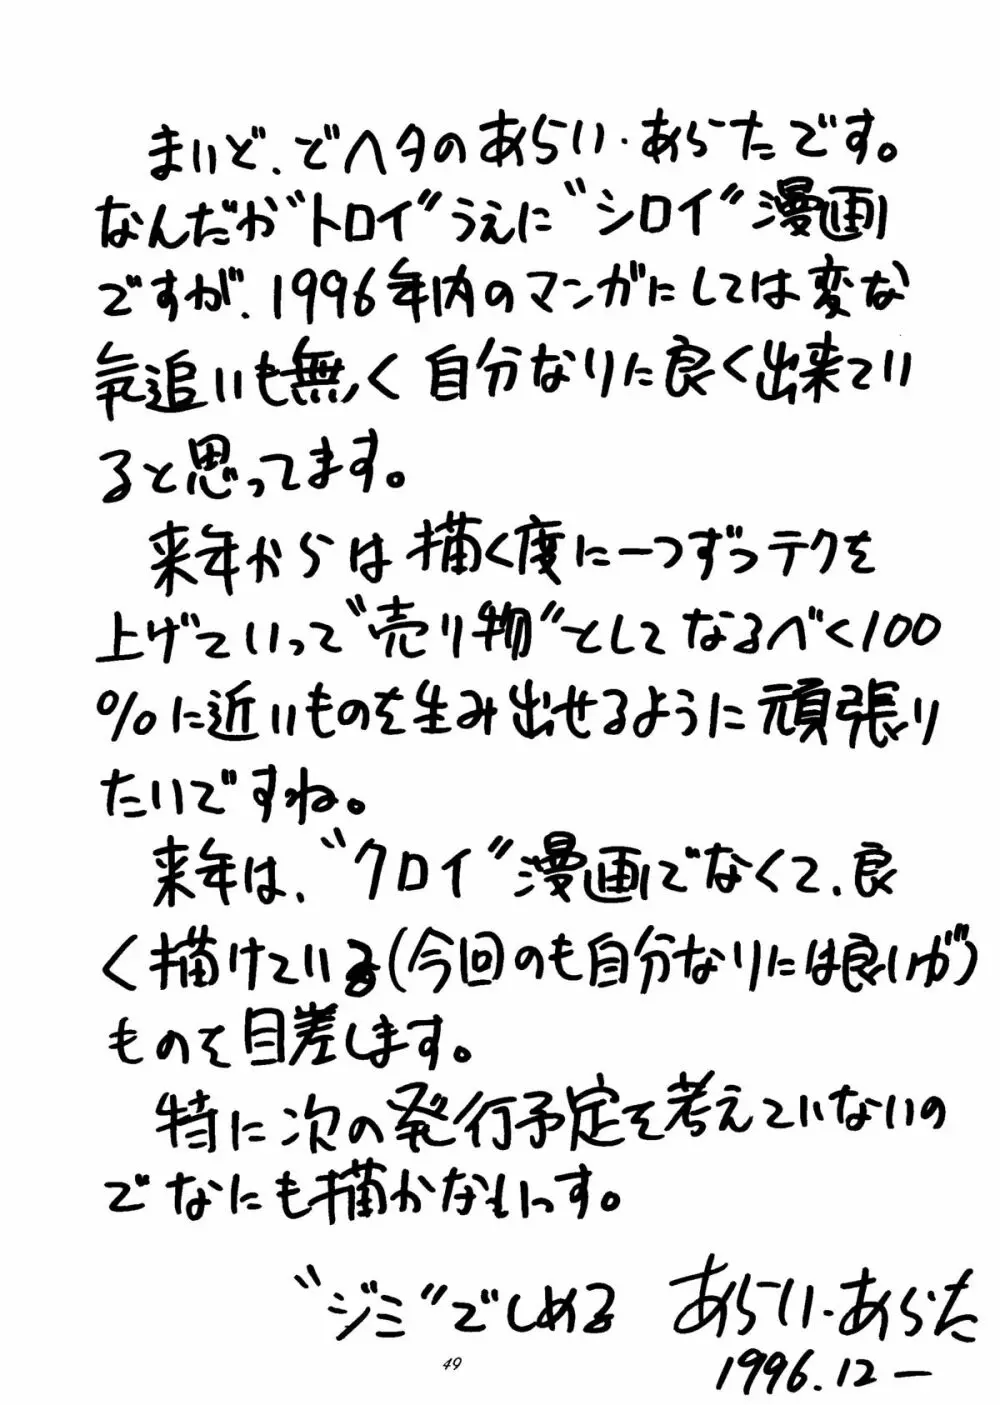 まいど、どヘタのあらい・あらたです。
なんだか〝トロイ〟うえに〝シロイ〟漫画
ですが、1996年内のマンガにしては変な
気追いも無く自分なりに良く出来てい
ると思ってます。
来年からは描く度に一つずつテクを
上げていって〝売り物〟としてなるべく100
%に近いものを生み出せるように頑張り
たいですね。
来年は、〝クロイ〟漫画でなくて、良
く描けている(今回のも自分なりには良いが)
ものを目差します。
特に次の発行予定を考えていないの
でなにも描かないっす。
〝ジミ〟でしめる あらい・あらた
1996.12―
49